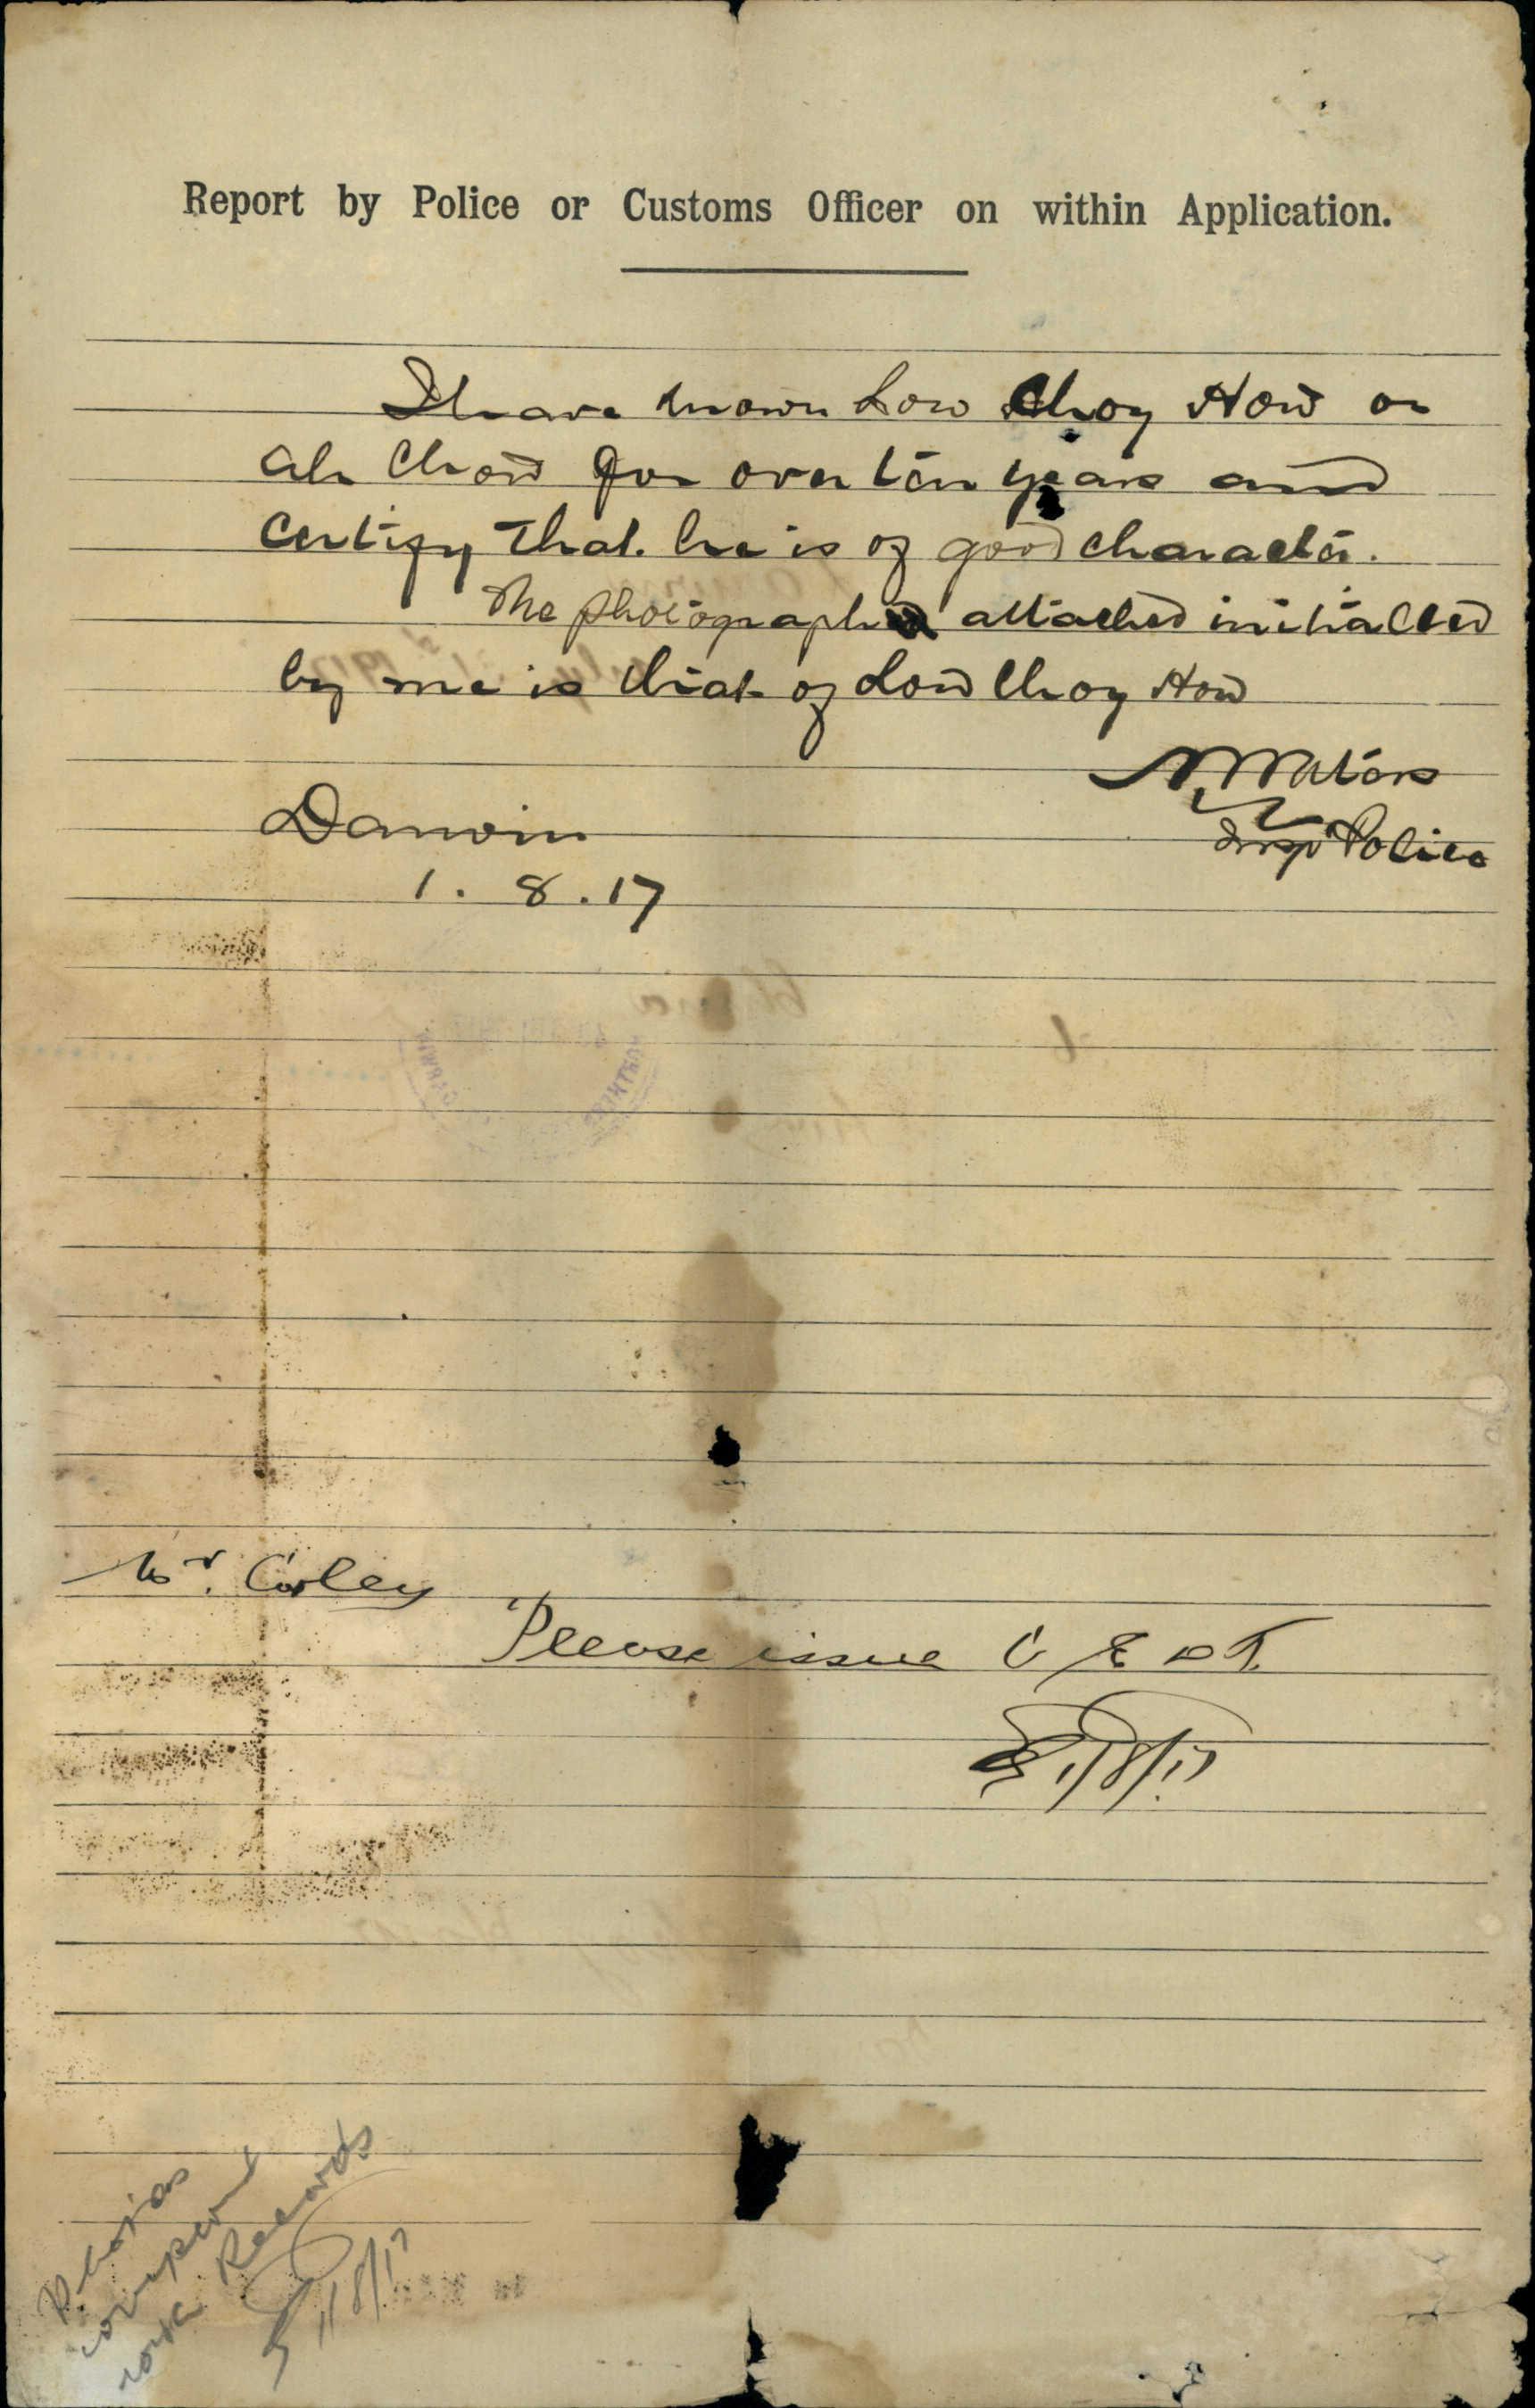 Report by Police or Customs Officer on within Application.
I have known Low Choy How or
Ah Chow for over ten years and
certify that he is of good character.
The photograph attached initialled
by me is that of Low Choy How
N Waters
Insp Police
Darwin
1. 8. 17
Mr. Corley
Please issue C E D T.
1/8/17
Photos
compared
with Records
1/8/17